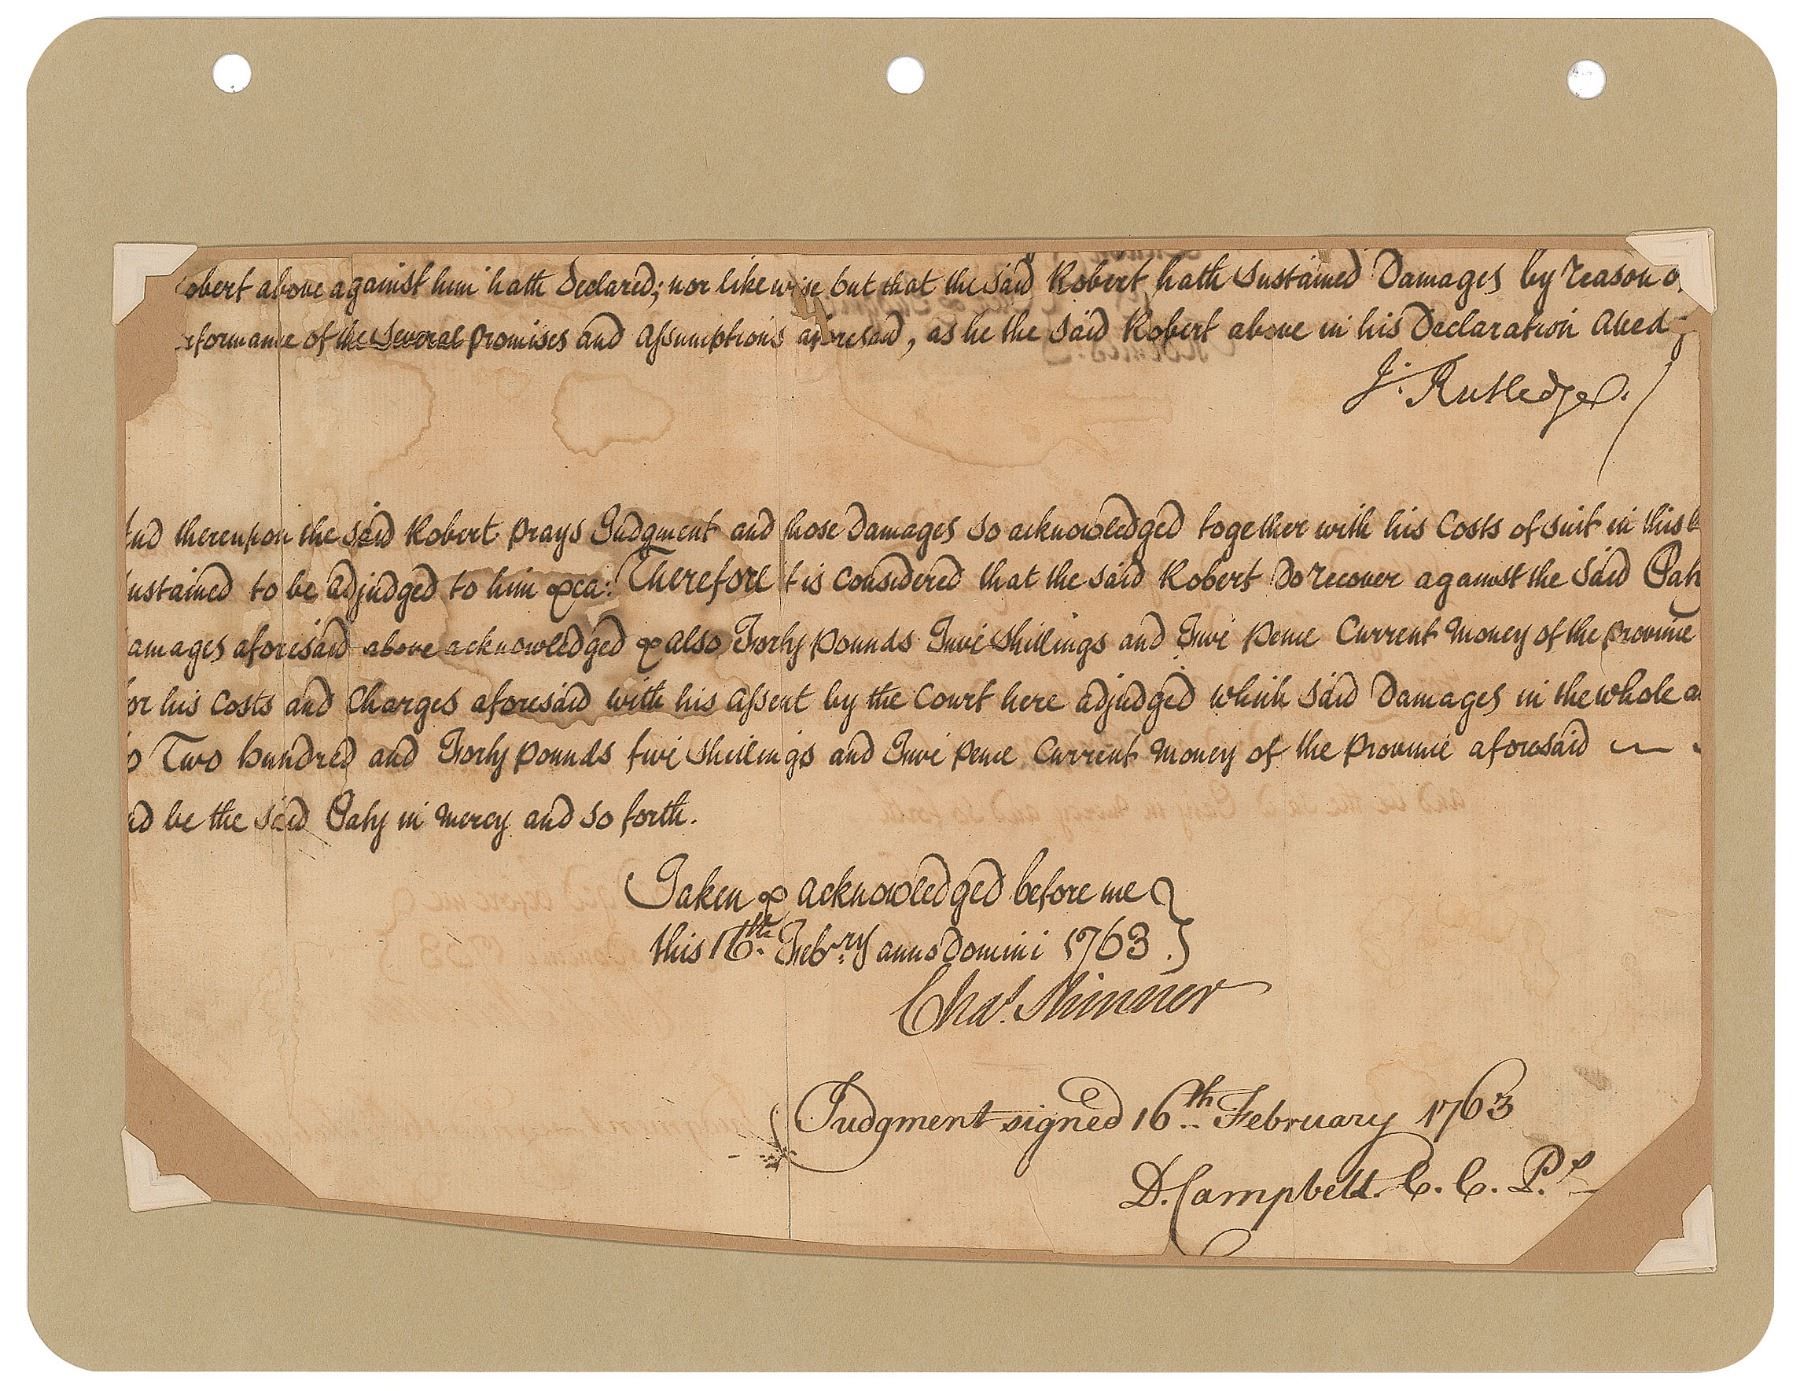 obert above against him hath Declared; nor likewise but that the said Robert hath Sustained Damages by reason o
rformance of the several promises and Assumptions aforesaid, as he the said Robert above in his Declaration Alled
J. Rutledge.
nd thereupon the said Robert prays Judgment and those Damages so acknowledged together with his Costs of suit in this
ustained to be adjudged to him &ca: Therefore t is considered that the said Robert Do recover against the said Caty
amages aforesaid above acknowledged & also Forty pounds Five Shillings and Five pence Current money of the province
or his Costs and Charges aforesaid with his Assent by the Court here adjudged which said Damages in the whole a
o Two hundred and Forty pounds five Shillings and Five pence Current money of the province aforesaid
nd be the said Caty in mercy and so forth.
Taken & acknowledged before me
this 16th. Feb:ry anno Domini 1763.
Chas. Skinner
Judgment signed 16th February 1763
D. Campbell. C. C. Ps